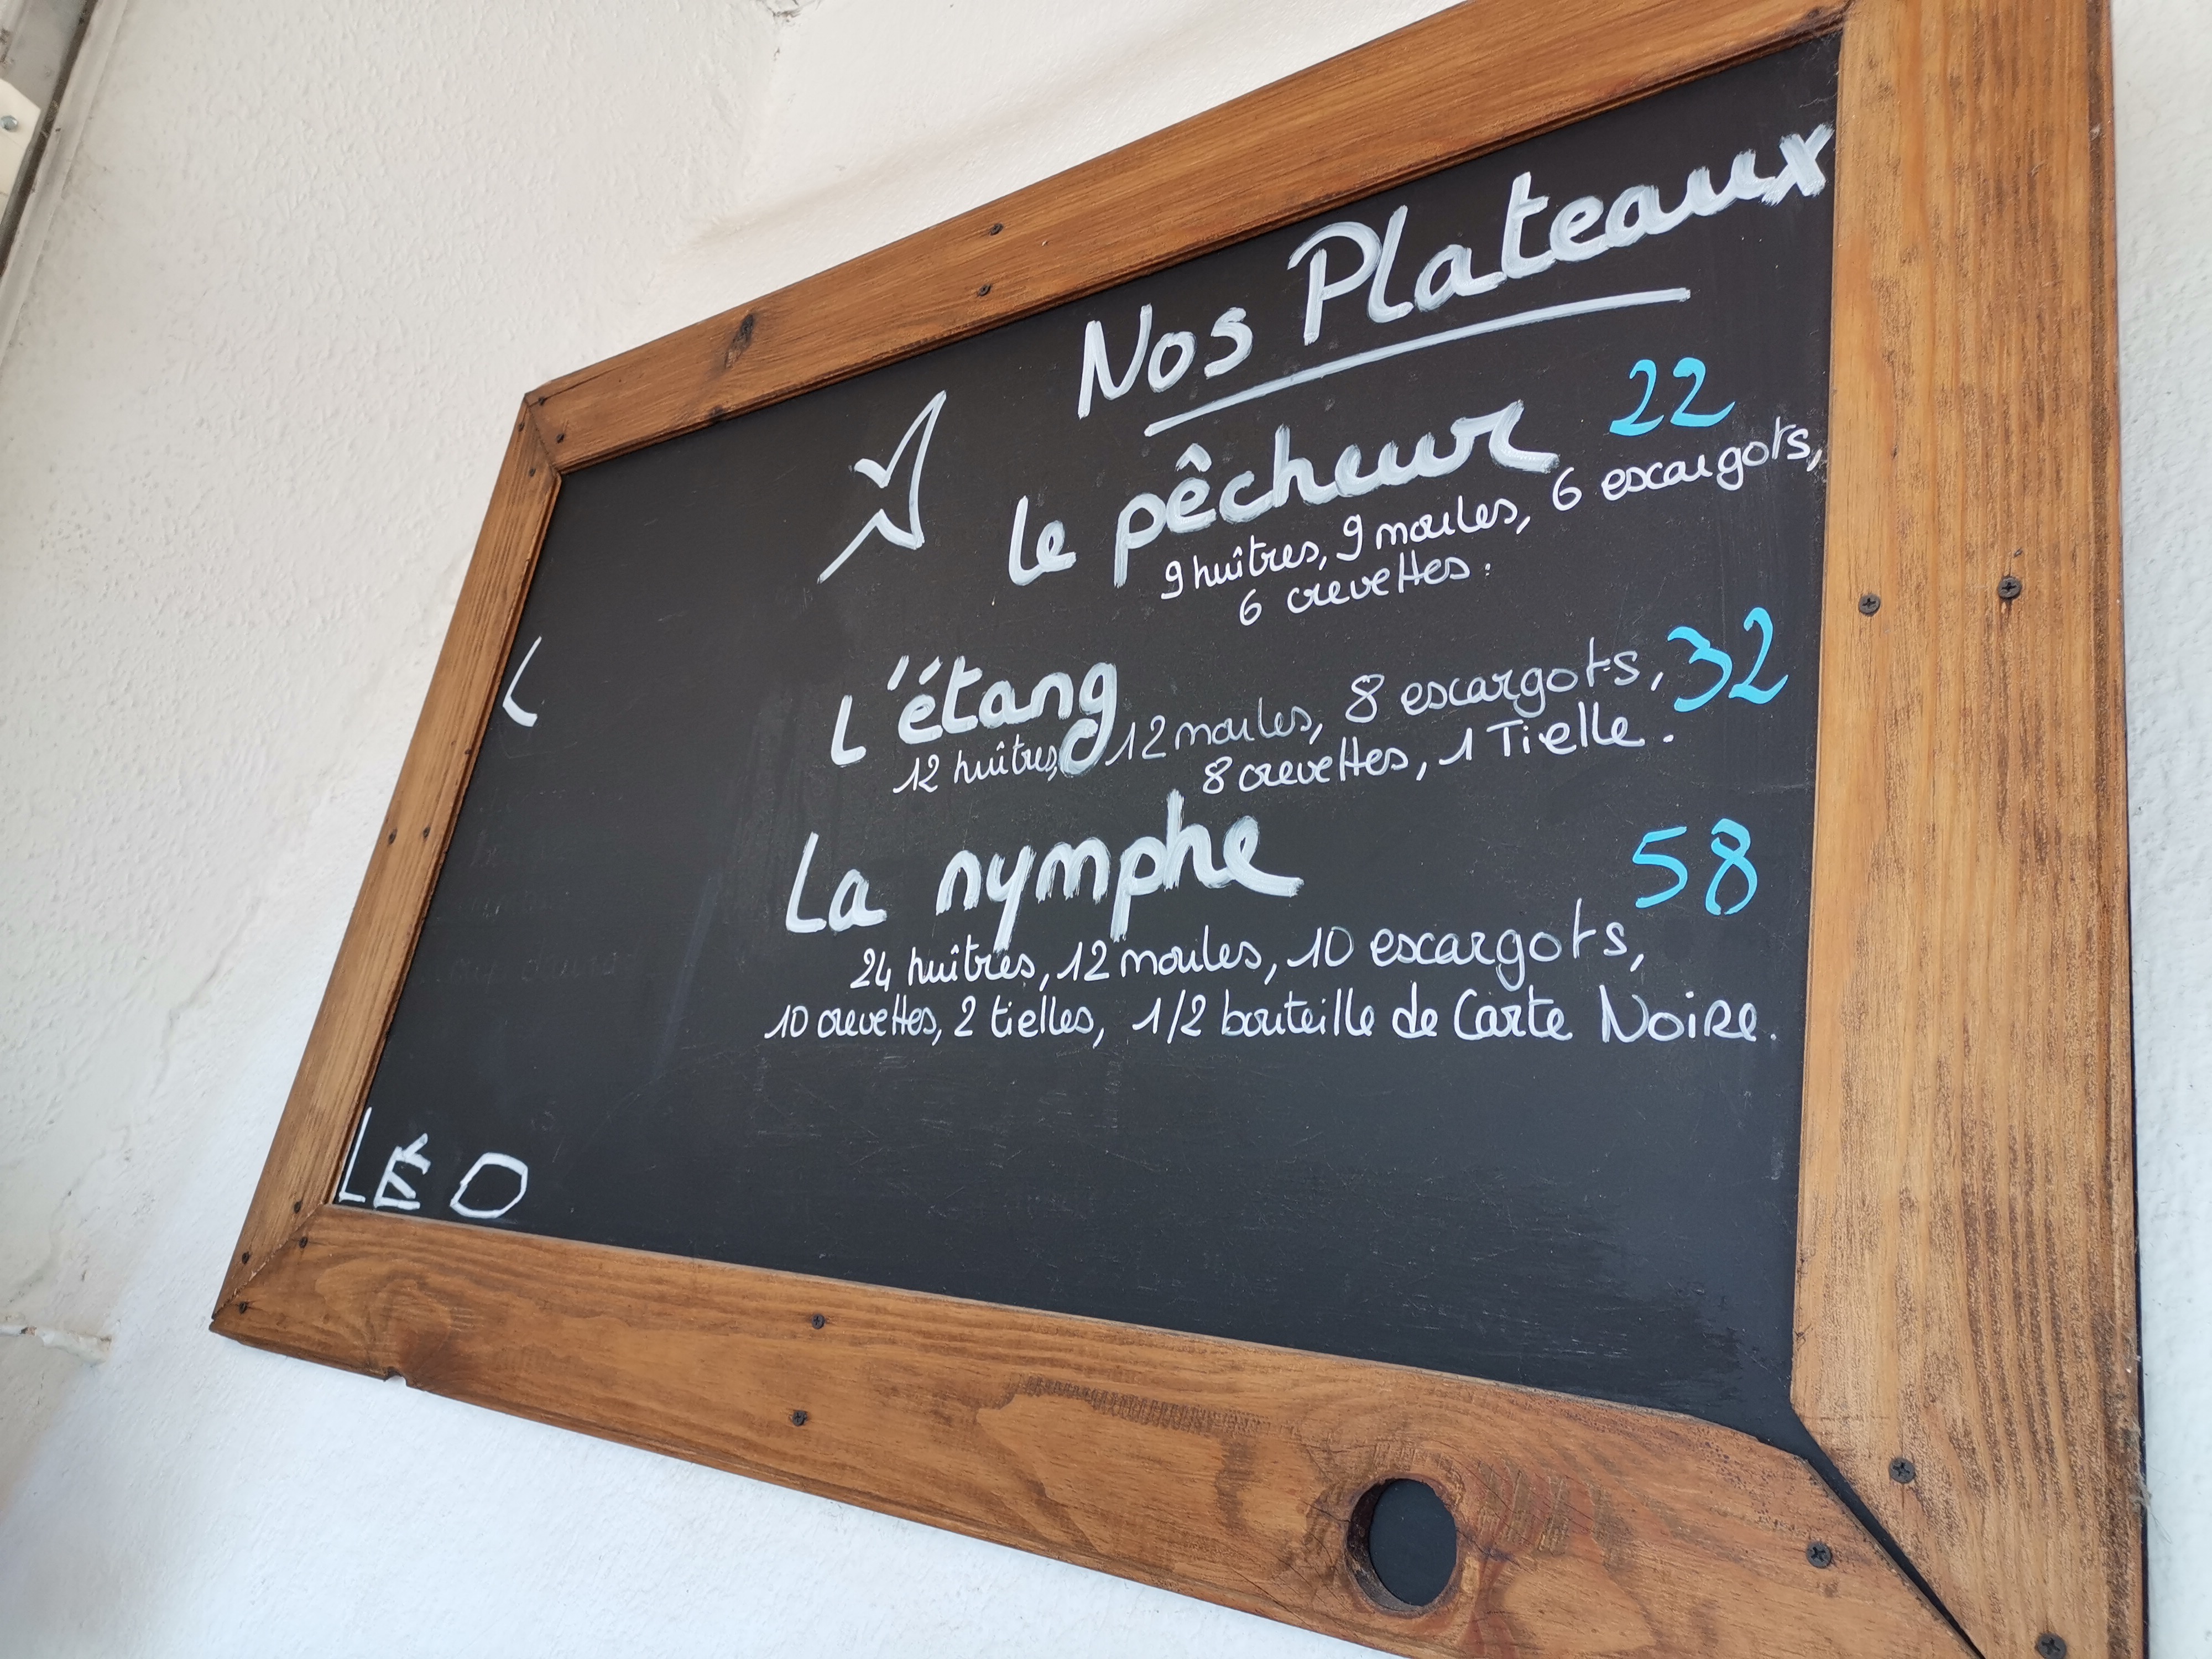 Nos Plateaux
Le pêcheur 22
9 huîtres, 9 moules, 6 escargots,
6 crevettes.
L'étang 32
12 huîtres, 12 moules, 8 escargots,
8 crevettes, 1 Tielle.
La nymphe 58
24 huîtres, 12 moules, 10 escargots,
10 crevettes, 2 tielles, 1/2 bouteille de Carte Noire.
L
LÉO